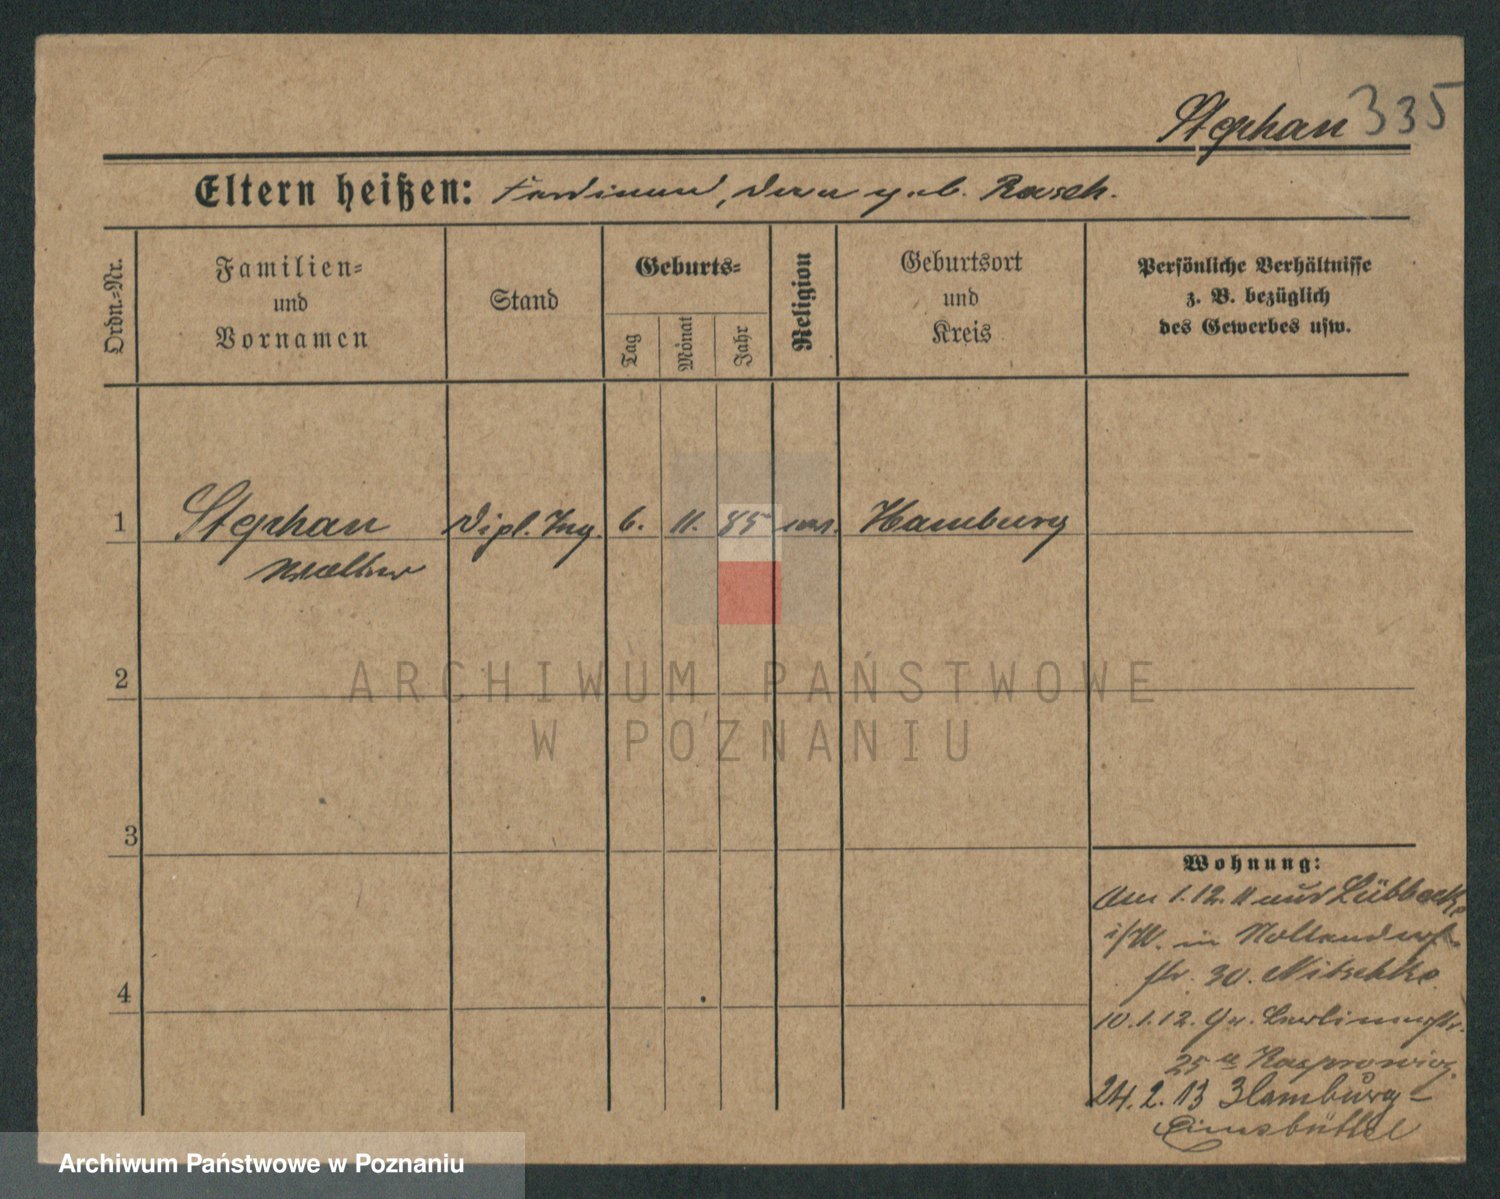 Stephan 335
Eltern heißen: Ferdinand, Dora geb. Rasch.
Ordn.=Nr.
Familien=
und
Vornamen
Stand
Geburts=
Tag
Monat
Jahr
Religion
Geburtsort
und
Kreis
Persönliche Verhältnisse
z. B. bezüglich
des Gewerbes usw.
1 Stephan Dipl. Ing. 6. 11. 85 Hamburg
Walther
ARCHIWUM PAŃSTWOWE
W POZNANIU
2
3
4
Wohnung:
Am 1.12.11 aus Lübbecke
i/W. in
str. 30. Nitschke
10.1.12. Gr. Berlinerstr.
25 a Kasprowicz.
24.2.13 Hamburg-
Eimsbüttel
Archiwum Państwowe w Poznaniu